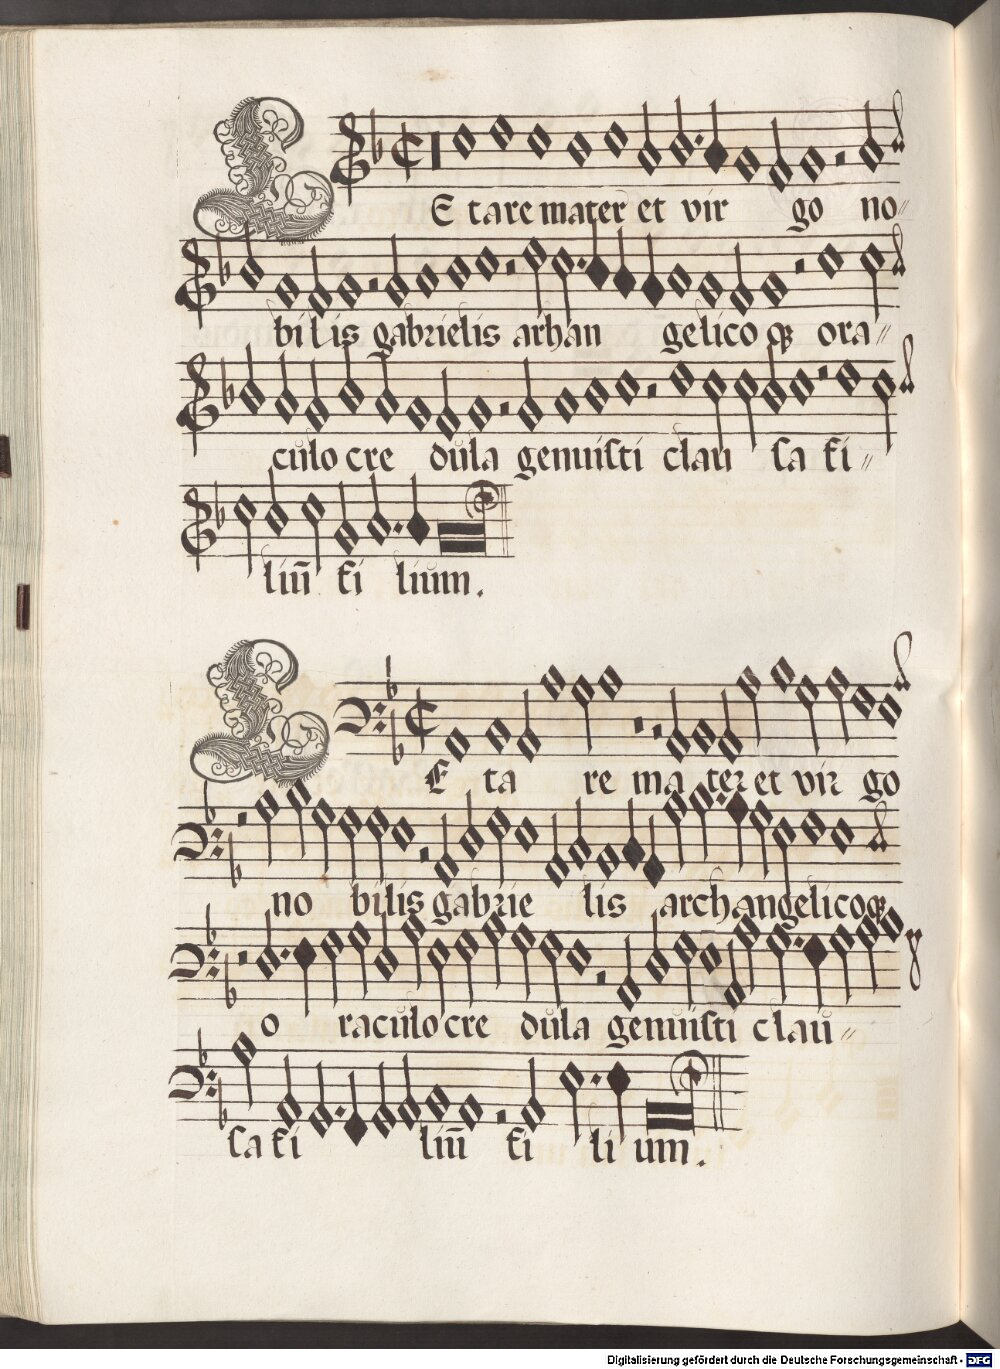 LEtare mater et vir go no
bilis gabrielis arhan gelicoqꝫ ora
culo cre dula genuisti clau sa fi
liū fi lium.
LEta re ma ter et vir go
no bilis gabrie lis archangelicoqꝫ
o raculo cre dula genuisti clau
sa fi liū fi li um.
Digitalisierung gefördert durch die Deutsche Forschungsgemeinschaft - DFG